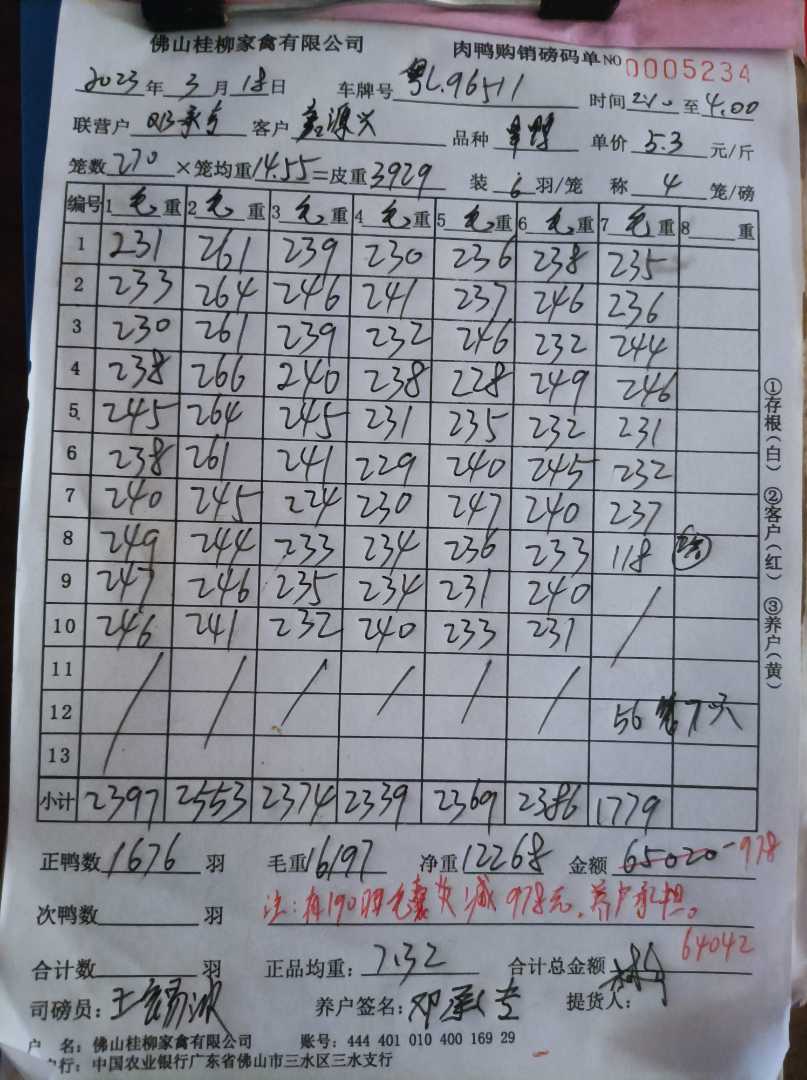 佛山桂柳家禽有限公司 肉鸭购销磅码单 NO 0005234
2023年3月18日 车牌号 粤L.96511 时间 2:10 至 4.00
联营户 邓承专 客户 源兴 品种 单价 5.3 元/斤
笼数 270 ×笼均重 14.55 =皮重 3929 装 6 羽/笼 称 4 笼/磅
编号 1 毛 重 2 毛 重 3 毛 重 4 毛 重 5 毛 重 6 毛 重 7 毛 重 8 重
1 231 261 239 230 236 238 235
2 233 264 246 241 237 246 236
3 230 261 239 232 246 232 244
4 238 266 240 238 228 249 246
5 245 264 245 231 235 232 231
6 238 261 241 229 240 245 232
7 240 245 224 230 247 240 237
8 249 244 233 234 236 233 118
9 247 246 235 234 231 240 /
10 246 241 232 240 233 231
11 / / / / / /
12 56 7只
13
小计 2397 2553 2374 2339 2369 2386 1779
正鸭数 1676 羽 毛重 16197 净重 12268 金额 65020 -978
次鸭数 羽 注:有190只毛囊炎减978元,养户承担。
64042
合计数 羽 正品均重: 7.32 合计总金额
司磅员: 王 养户签名: 邓承专 提货人:
户 名: 佛山桂柳家禽有限公司 账号: 444 401 010 400 169 29
行: 中国农业银行广东省佛山市三水区三水支行
①存根(白) ②客户(红) ③养户(黄)